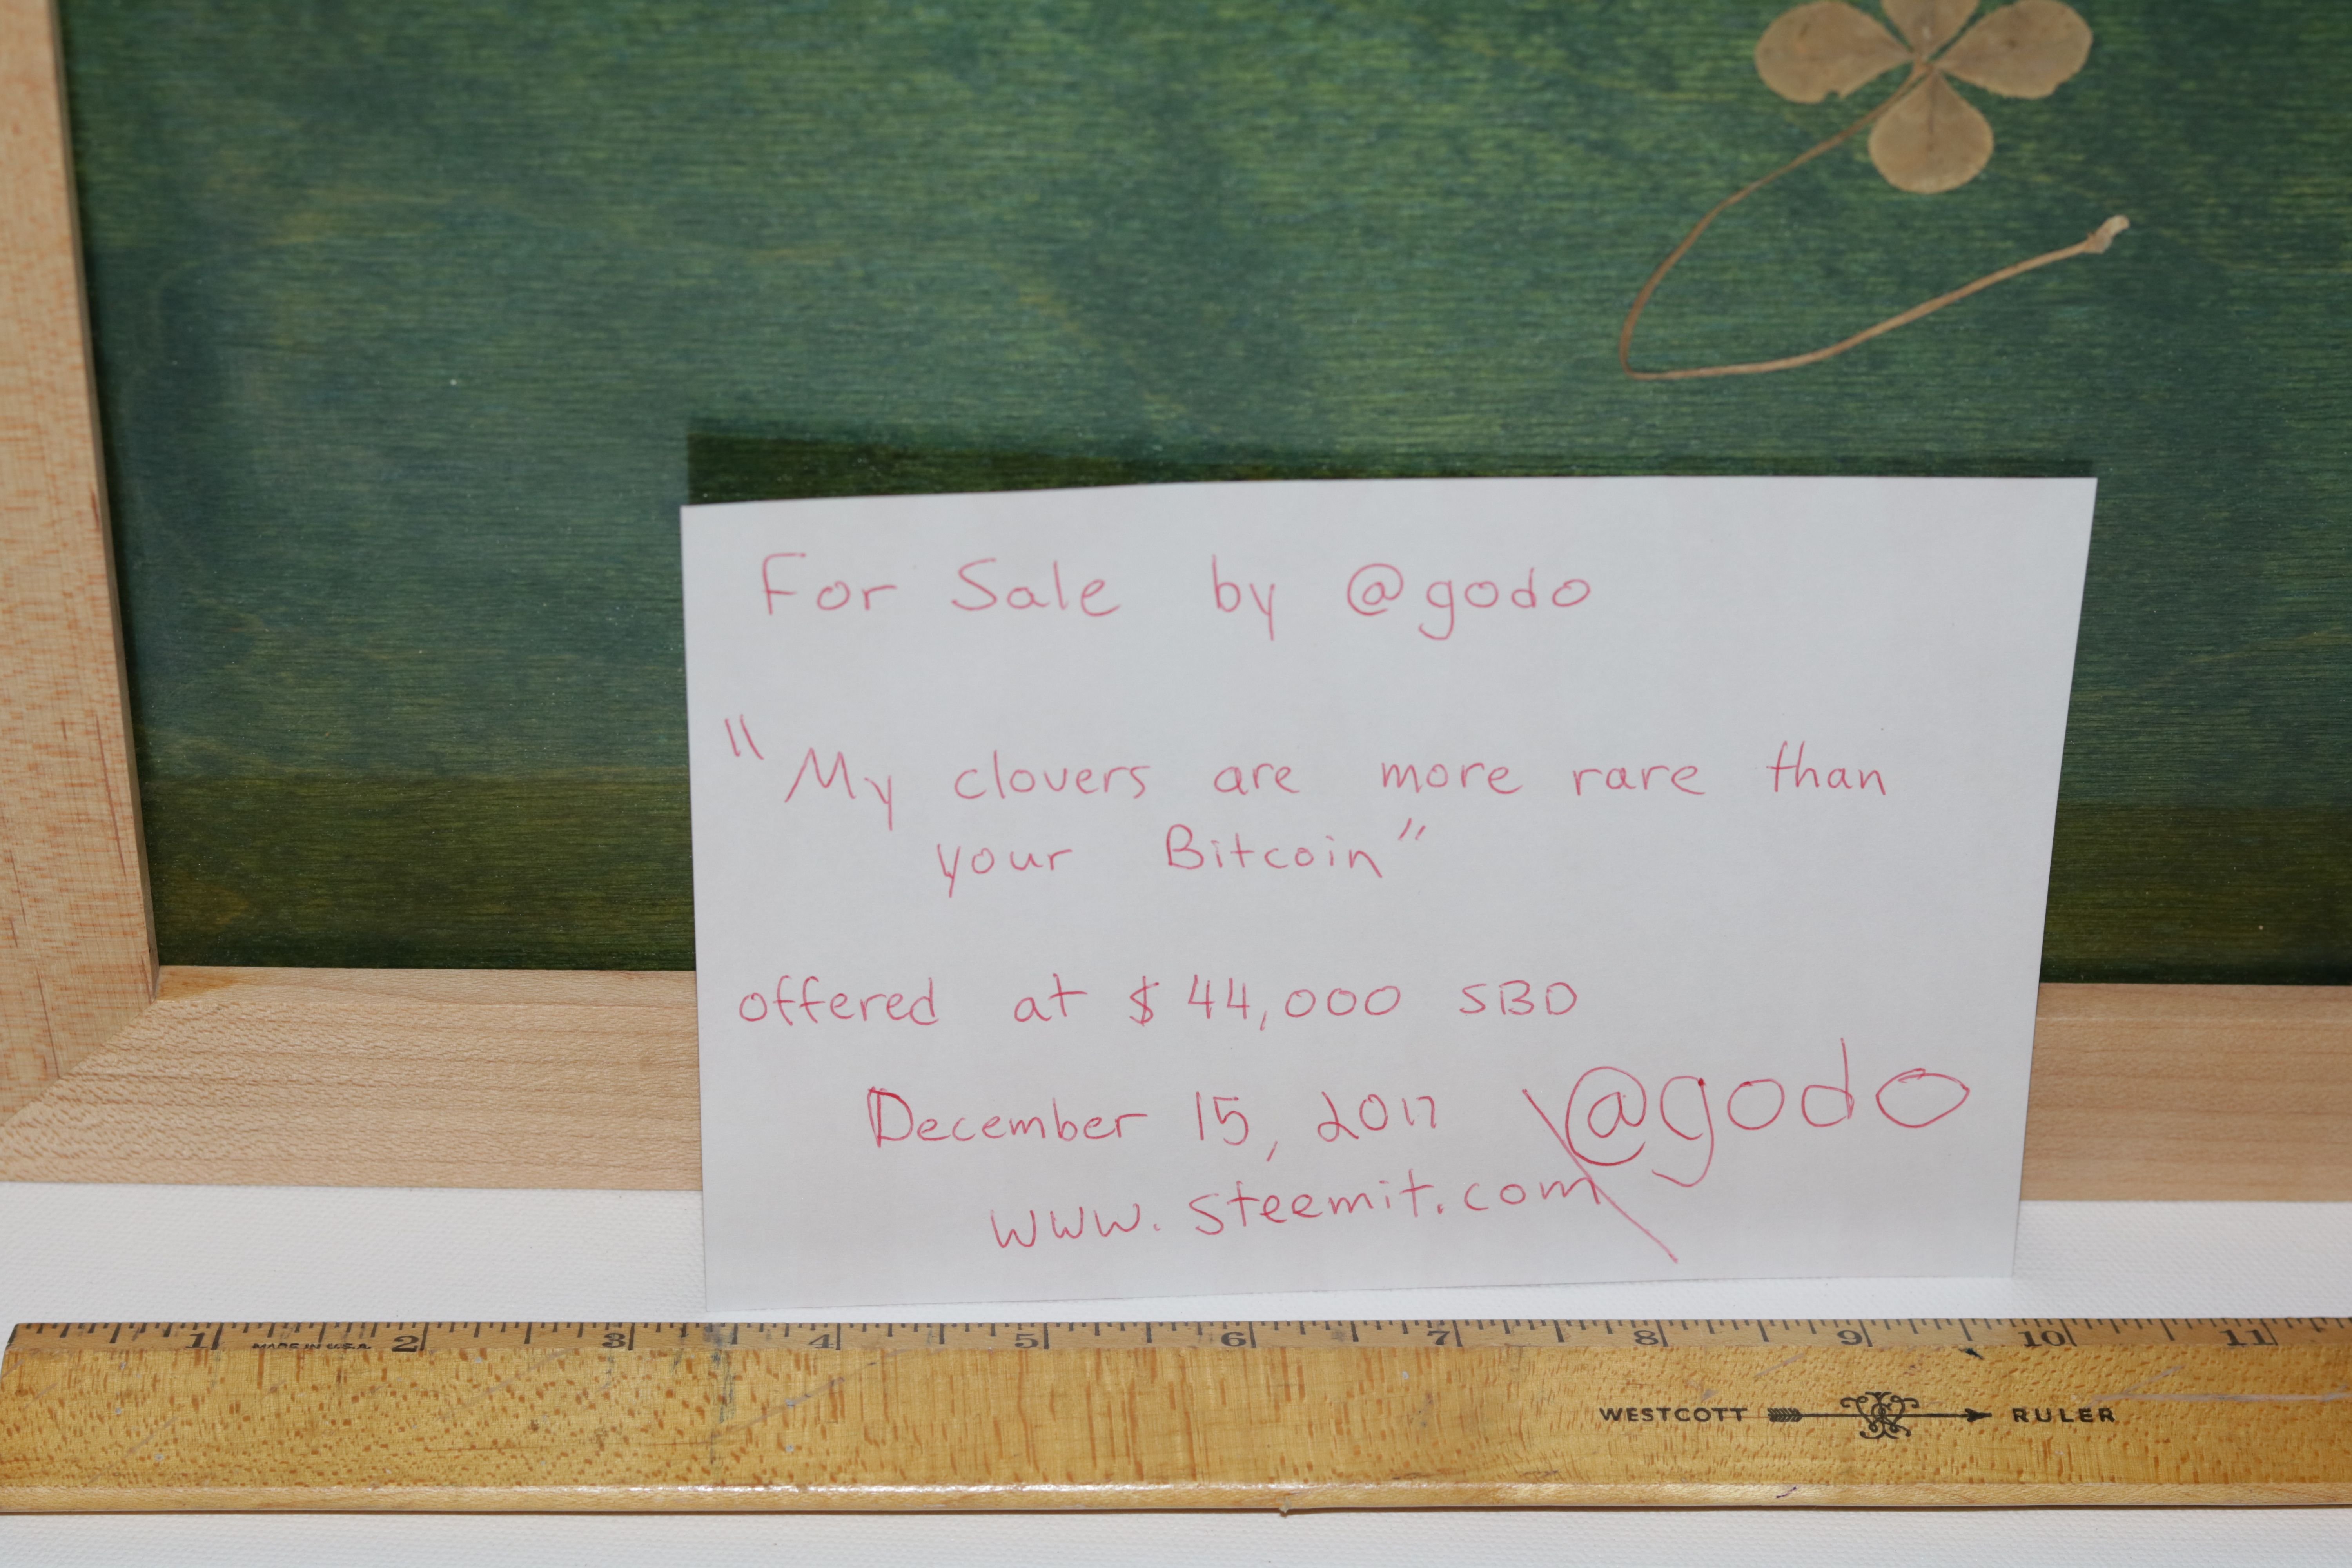 For Sale by @godo
"My clovers are more rare than
your Bitcoin"
offered at $44,000 SBD
December 15, 2017 \@godo
www.steemit.com
1 2 3 4 5 6 7 8 9 10 11
MADE IN U.S.A.
WESTCOTT RULER